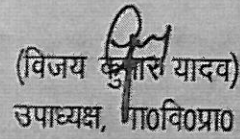 (विजय कुमार यादव)
उपाध्यक्ष, गा०वि०प्रा०